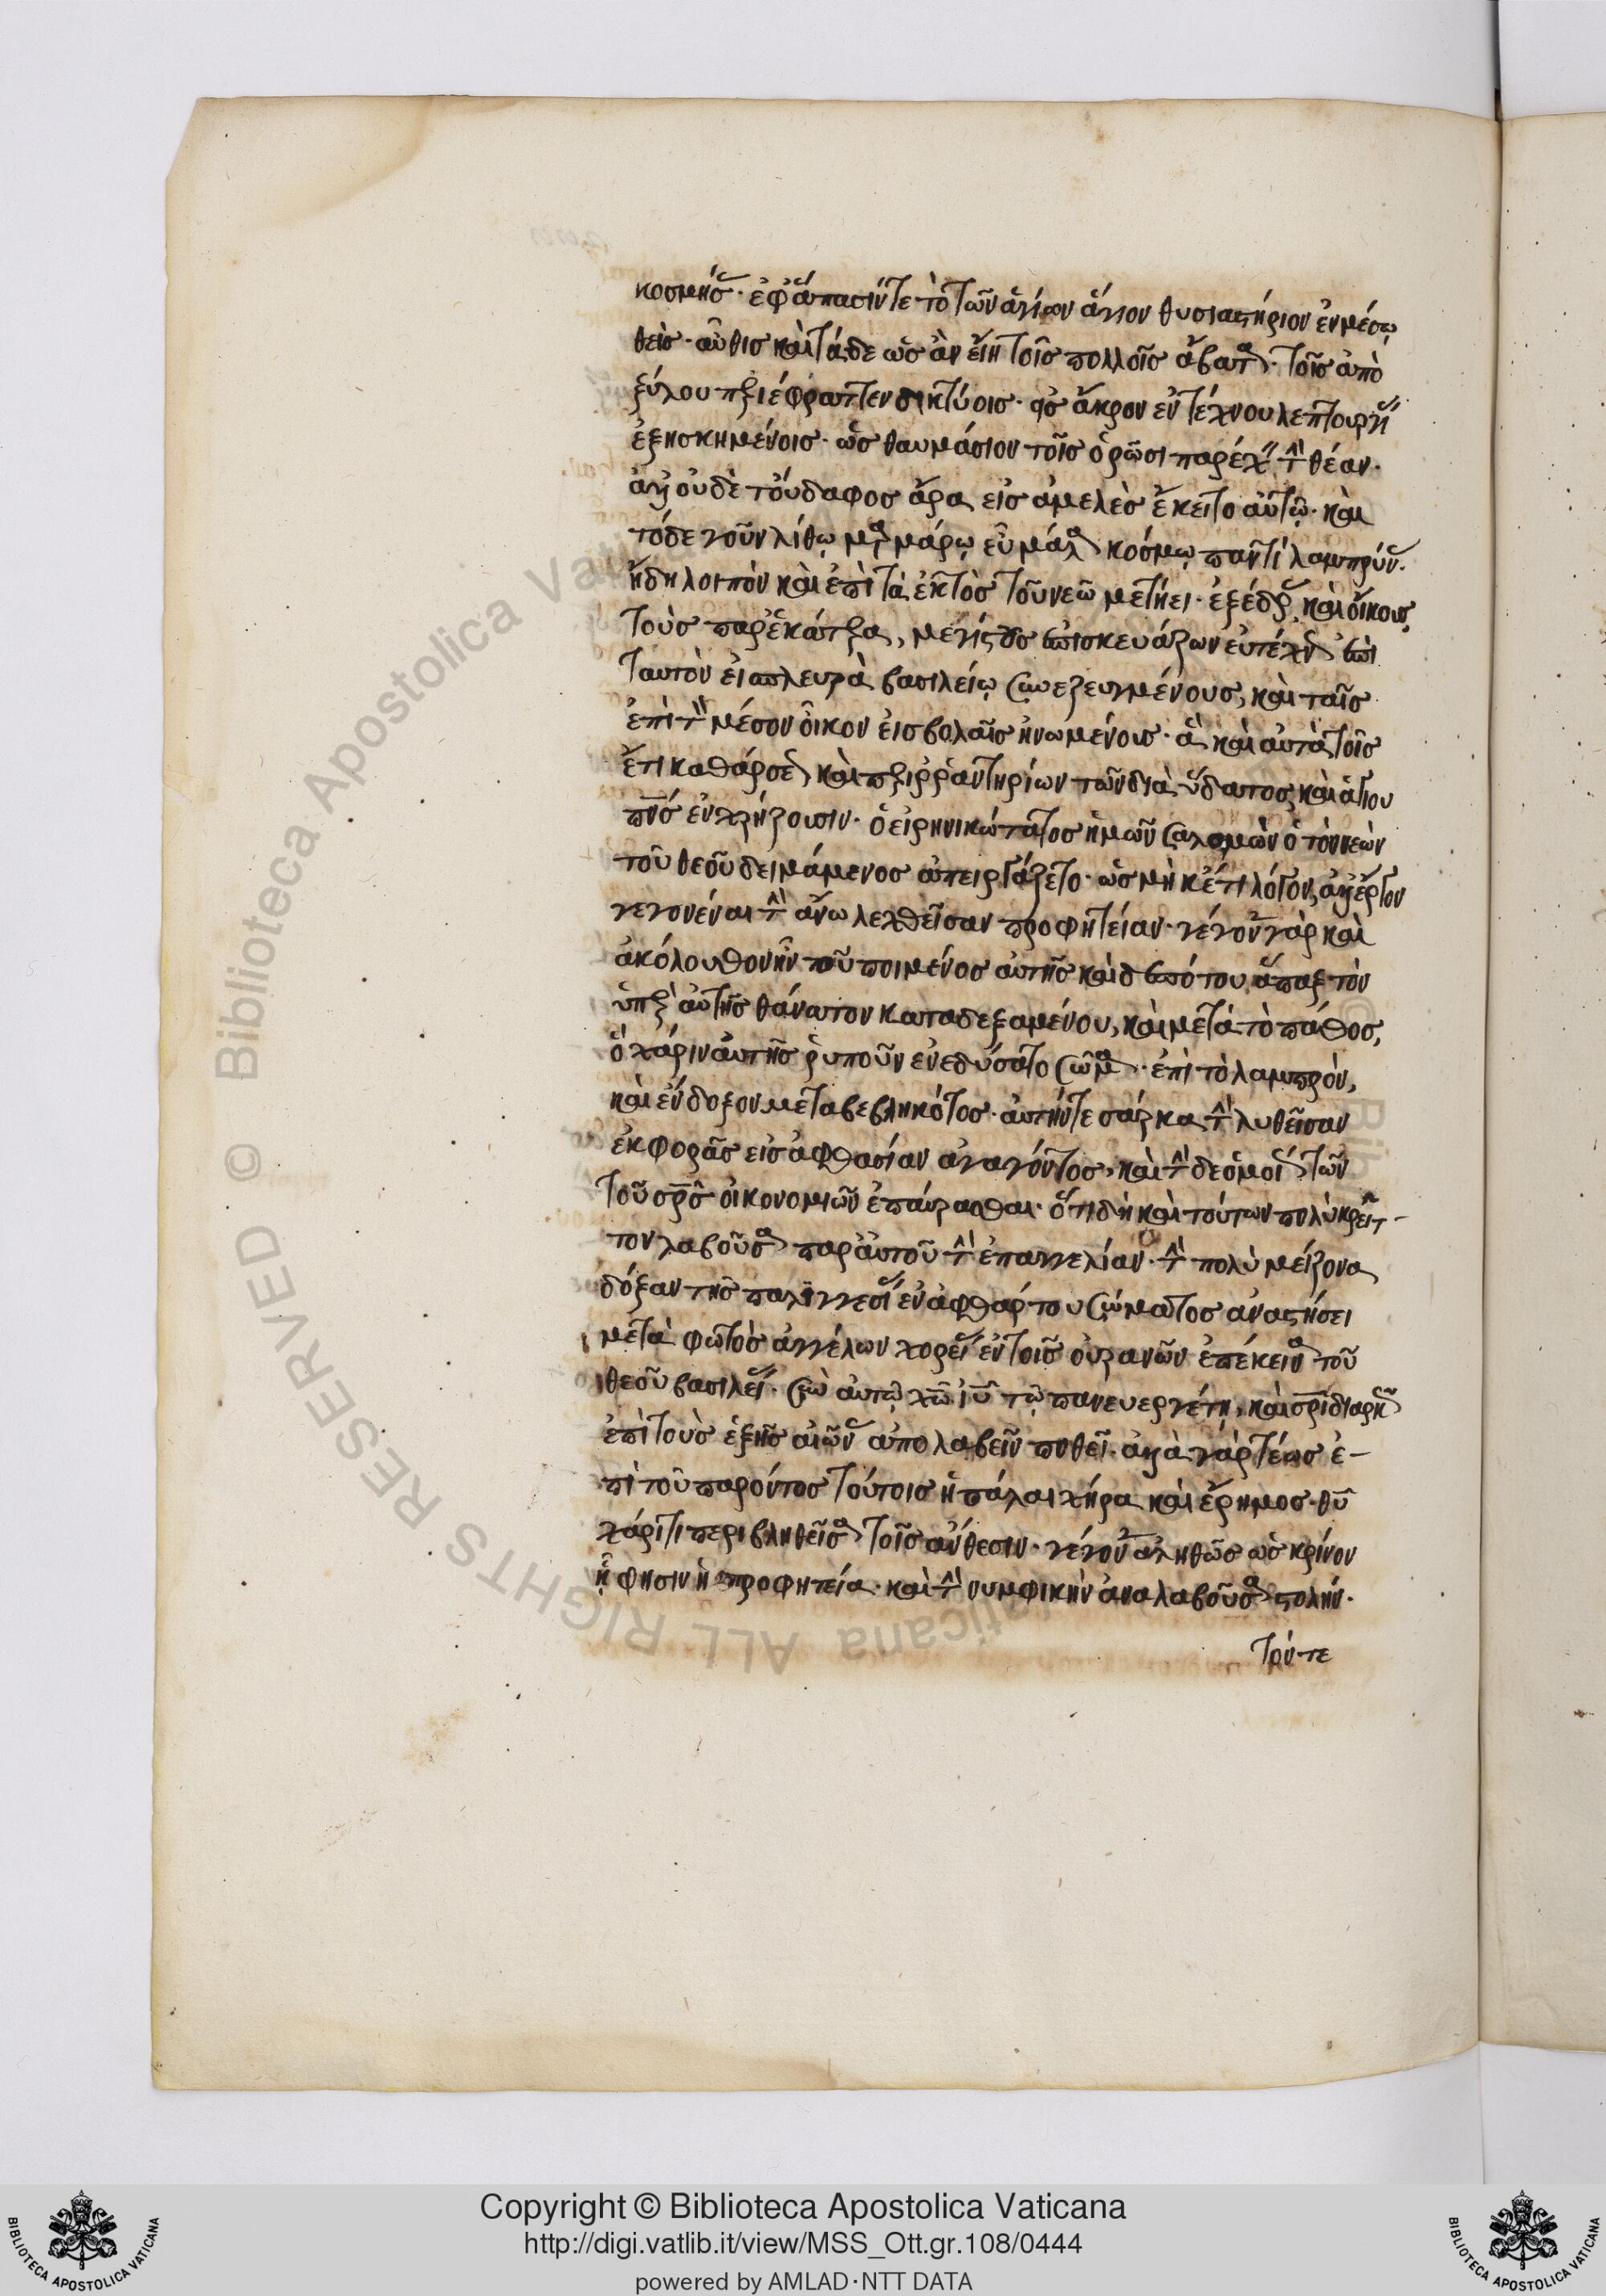 κοσμήσ. ἐφ ἅπασίν τε τὸ τῶν ἁγίων ἅγιον θυσιαστήριον ἐν μέσῳ
θεὶσ. αὖθισ καὶ τάδε ὡσ ἂν εἴη τοῖσ πολλοῖσ ἄβατα. τοῖσ ἀπὸ
ξύλου περιέφραττεν δικτύοισ. εἰσ ἄκρον ἐντέχνου λεπτουργίασ
ἐξησκημένοισ. ὡσ θαυμάσιον τοῖσ ὁρῶσι παρέχειν τὴν θέαν.
ἀλλ οὐδὲ τοὔδαφοσ ἄρα εἰσ ἀμελὲσ ἔκειτο αὐτῷ. καὶ
τόδε γοῦν λίθῳ μαρμάρῳ εὖ μάλα κόσμῳ παντὶ λαμπρύνασ.
ἤδη λοιπὸν καὶ ἐπὶ τὰ ἐκτὸσ τοῦ νεῶ μετῄει. ἐξέδρασ καὶ οἴκουσ
τοὺσ παρ ἑκάτερα, μεγίστουσ ἐπισκευάζων εὐτέχνωσ ἐπὶ
ταυτὸν εἰσ πλευρὰ βασιλείῳ συνεζευγμένουσ, καὶ ταῖσ
ἐπὶ τὸν μέσον οἶκον εἰσβολαῖσ ἡνωμένουσ. ἃ καὶ αὐτὰ τοῖσ
ἔτι καθάρσεωσ καὶ περιρραντηρίων τῶν διὰ ὕδατοσ καὶ ἁγίου
πνσ ἐγχρῄζουσιν. ὁ εἰρηνικώτατοσ ἡμῶν σαλομὼν ὁ τὸν νεὼν
τοῦ θεοῦ δειμάμενοσ ἀπειργάζετο. ὡσ μηκέτι λόγον, ἀλλ ἔργον
γεγονέναι τὴν ἄνω λεχθεῖσαν προφητείαν. γέγονεν γὰρ καὶ
ἀκόλουθον ἦν τοῦ ποιμένοσ αὐτῆσ καὶ δεσπότου ἅπαξ τὸν
ὑπὲρ αὐτῆσ θάνατον καταδεξαμένου, καὶ μετὰ τὸ πάθοσ,
ὃ χάριν αὐτῆσ ῥυποῦν ἐνεδύσατο σῶμα. ἐπὶ τὸ λαμπρὸν,
καὶ ἔνδοξον μεταβεβληκότοσ. αὐτήν τε σάρκα τὴν λυθεῖσαν
ἐκ φορᾶσ εἰσ ἀφθασίαν ἀγαγόντοσ, καὶ τὴν δεομοίωσ τῶν
τοῦ σρσ οἰκονομιῶν ἐπαύρασθαι. ὅτι δὴ καὶ τούτων πολὺ κρεῖτ-
τον λαβοῦσα παρ αὐτοῦ τὴν ἐπαγγελίαν. τὴν πολὺ μείζονα
δόξαν τῆσ παλιγγεσίασ ἐν ἀφθάρτου σώματοσ ἀναστήσει
μετὰ φωτὸσ ἀγγέλων χορείασ ἐν τοῖσ οὐρανῶν ἐπέκεινα τοῦ
θεοῦ βασιλείοισ. σὺν αὐτῷ χῶ ἰυ τῷ πανευεργέτῃ, καὶ σρι διαρκῶσ
ἐπὶ τοὺσ ἑξῆσ αἰῶνασ ἀπολαβεῖν ποθεῖ. ἀλλὰ γὰρ τέωσ ἐ-
πὶ τοῦ παρόντοσ τούτοισ ἡ πάλαι χήρα καὶ ἔρημοσ. θυ
χάριτι περιβληθεῖσα τοῖσ ἄνθεσιν. γέγονεν ἀληθῶσ ὡσ κρίνον
ᾗ φησιν ἡ προφητεία. καὶ τὴν νυμφικὴν ἀναλαβοῦσα στολήν.
τόν τε
Copyright © Biblioteca Apostolica Vaticana
http://digi.vatlib.it/view/MSS_Ott.gr.108/0444
powered by AMLAD·NTT DATA
BIBLIOTECA APOSTOLICA VATICANA
BIBLIOTECA APOSTOLICA VATICANA
© Biblioteca Apostolica Vaticana ALL RIGHTS RESERVED